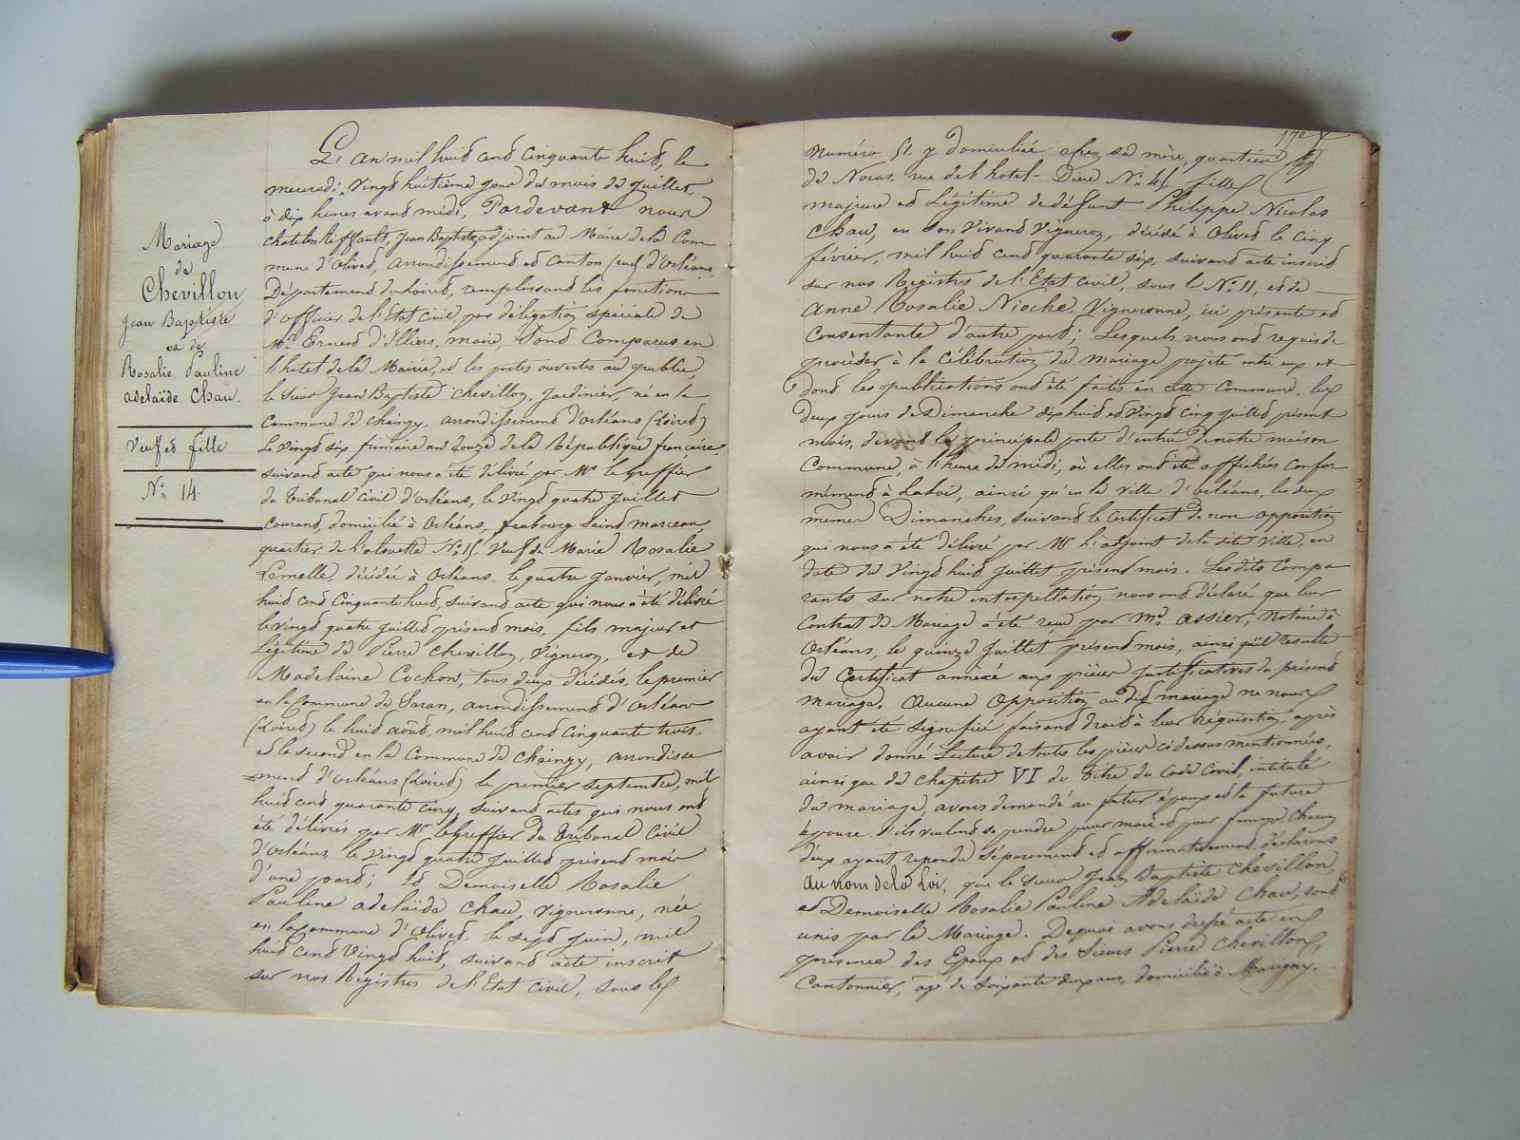 Mariage
de
Chevillon
Jean Baptiste
et de
Rosalie Pauline
adelaïde Chau.
Veuf et fille
N° 14
L'an mil huit cent cinquante huit, le
mercredi vingt huitième jour du mois de Juillet,
à dix heures avant midi, Pardevant nous
Jean Baptiste, adjoint au Maire de la Com
mune d'Olivet, arrondissement et Canton Sud d'Orléans
Département du Loiret, remplissant les fonctions
d'officier de l'Etat Civil par délégation spéciale de
Mr Ernest d'Illiers, maire, Sont Comparus en
l'hotel de la Mairie, et les portes ouvertes au public,
le Sieur Jean Baptiste Chevillon, Jardinier, né en la
Commune de Chaingy, arrondissement d'Orléans (Loiret)
le vingt six frimaire an douze de la République française
suivant acte qui nous a été délivré par Mr le Greffier
du Tribunal Civil d'Orléans, le vingt quatre Juillet
Courant, domicilié à Orléans, faubourg Saint marceau,
quartier de l'alouette N° 15. Veuf de Marie Rosalie
Lemelle, décédée à Orléans le quatre Janvier, mil
huit cent Cinquante huit, suivant acte qui nous a été délivré
le vingt quatre Juillet présent mois, fils majeur et
Légitime de Pierre Chevillon, Vigneron, et de
Madelaine Cochon, tous deux décédés, le premier
en la Commune de Saran, arrondissement d'Orléans
(Loiret) le huit août, mil huit cent cinquante trois,
et la seconde en la Commune de Chaingy, arrondisse
=ment d'Orléans (Loiret) le premier septembre, mil
huit cent quarante cinq, suivant actes qui nous ont
été délivrés par Mr le Greffier du Tribunal Civil
d'Orléans le vingt quatre Juillet présent mois
d'une part; Et Demoiselle Rosalie
Pauline adelaïde Chau, Vigneronne, née
en la Commune d'Olivet le sept Juin, mil
huit cent Vingt huit, suivant acte inscrit
sur nos Régistres de l'Etat Civil, sous le
17e
Numéro 51. y domiciliée chez sa mère, quartier
de Noras, rue de l'hotel-Dieu N° 45, fille
majeure et Légitime de défunt Philippe Nicolas
Chau, en son vivant Vigneron, décédé à Olivet le cinq
février, mil huit cent quarante six, suivant acte inscrit
sur nos Registres de l'Etat Civil, sous le N° 11, et de
anne Rosalie Nioche, Vigneronne, ici présente et
Consentante d'autre part; Lesquels nous ont requis de
procéder à la Célébration du mariage projeté entre eux et
dont les publications ont été faites en cette Commune, les
deux jours de Dimanche dix huit et Vingt cinq Juillet présent
mois, devant la principale porte d'entrée de notre maison
Commune, à l'heure de midi, où elles ont été affichées confor
mément à la Loi, ainsi qu'en la Ville d'orléans, les deux
mêmes Dimanches, suivant le Certificat de non opposition
qui nous a été délivré par Mr L'adjoint de la dite Ville, en
date du Vingt huit Juillet présent mois. Lesdits Compa
rants sur notre interpellation nous ont déclaré que leur
Contrat de Mariage a été reçu par Me assier, Notaire à
Orléans, le quinze Juillet présent mois, ainsi qu'il résulte
du Certificat annexé aux pièces justificatives du présent
mariage. Aucune Opposition au dit mariage ne nous
ayant été signifiée faisant droit à leur réquisition, après
avoir donné Lecture de toutes les pièces ci dessus mentionnées,
ainsi que du chapitre VI du titre du Code Civil, intitulé
du mariage, avons demandé au futur époux et à la future
épouse s'ils veulent se prendre pour mari et pour femme, Chacun
d'eux ayant répondu séparément et affirmativement, déclarons
au nom de la Loi, que le Sieur Jean Baptiste Chevillon,
et Demoiselle Rosalie Pauline Adelaïde Chau, sont
unis par le Mariage. Dequoi avons dressé acte en
présence des Epoux et des Sieurs Pierre Chevillon,
Cantonnier, agé de soixante deux ans, domicilié à Marigny.